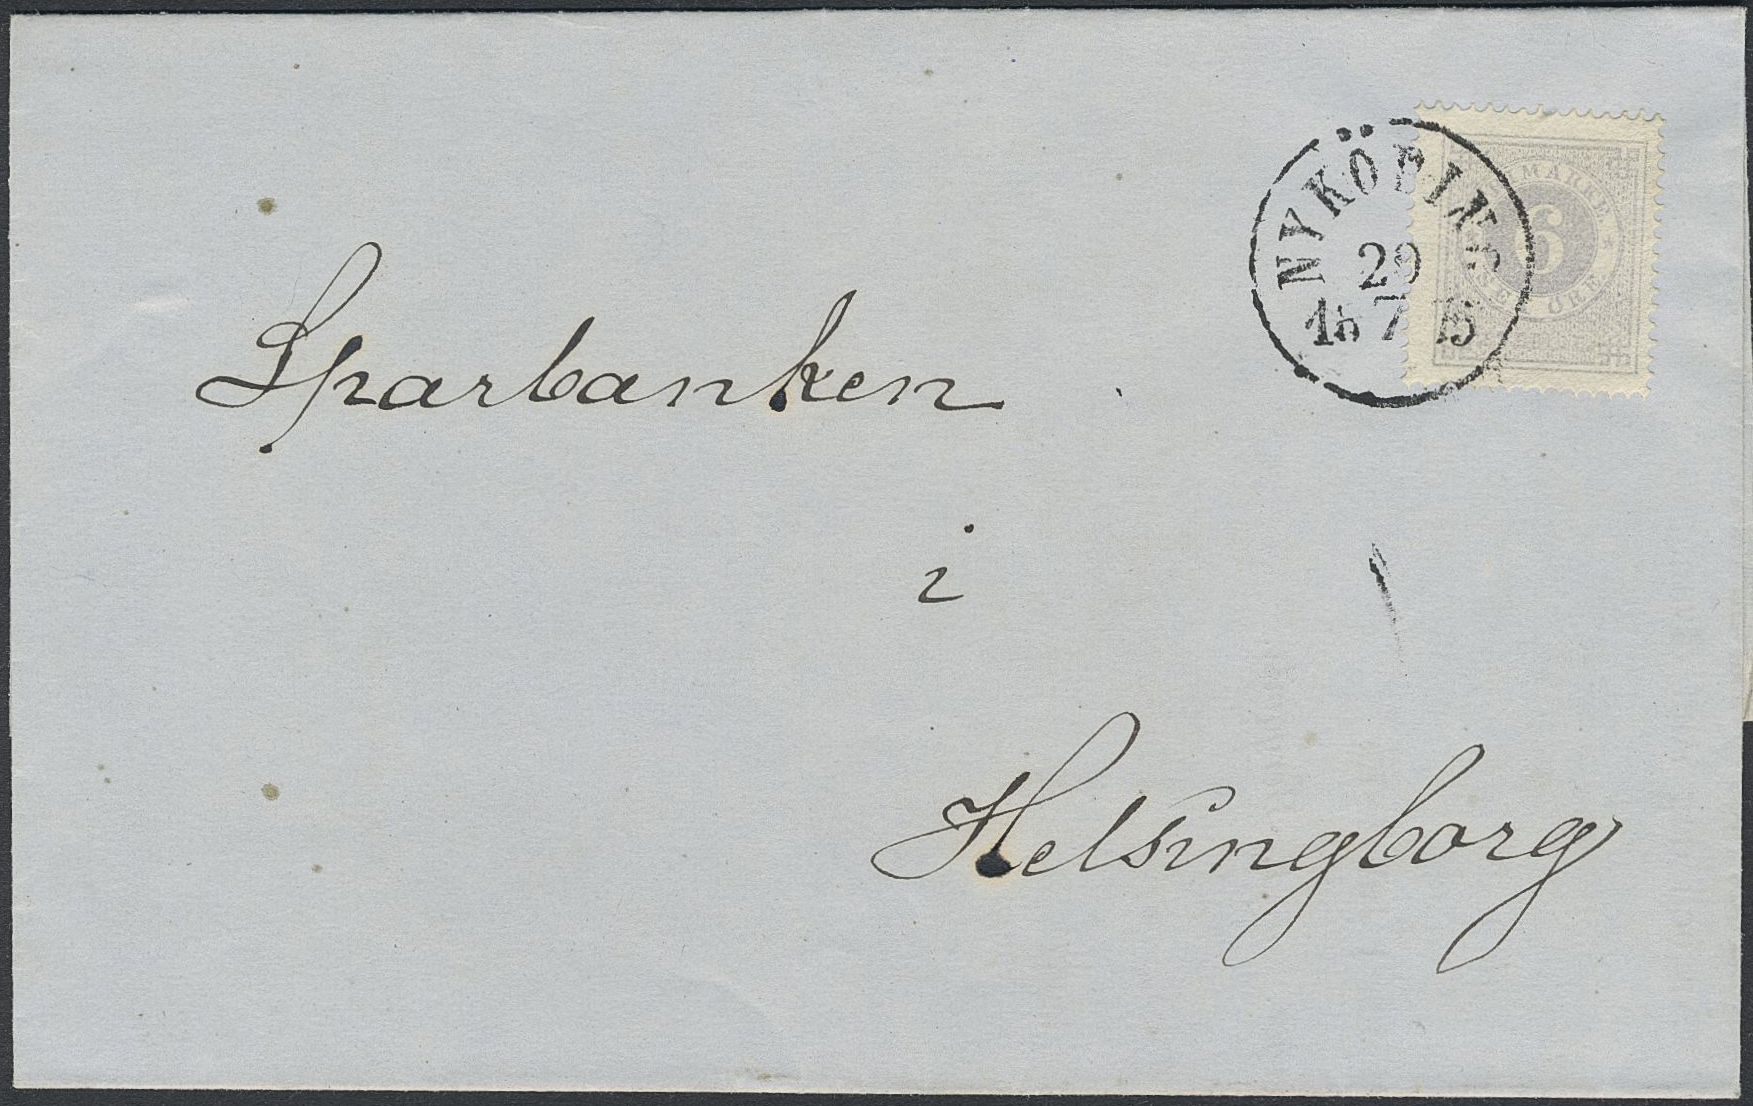 NYKÖPING
29
18 7 75
FRIMÄRKE
6
SEX ÖRE
Sparbanken
i
Helsingborg